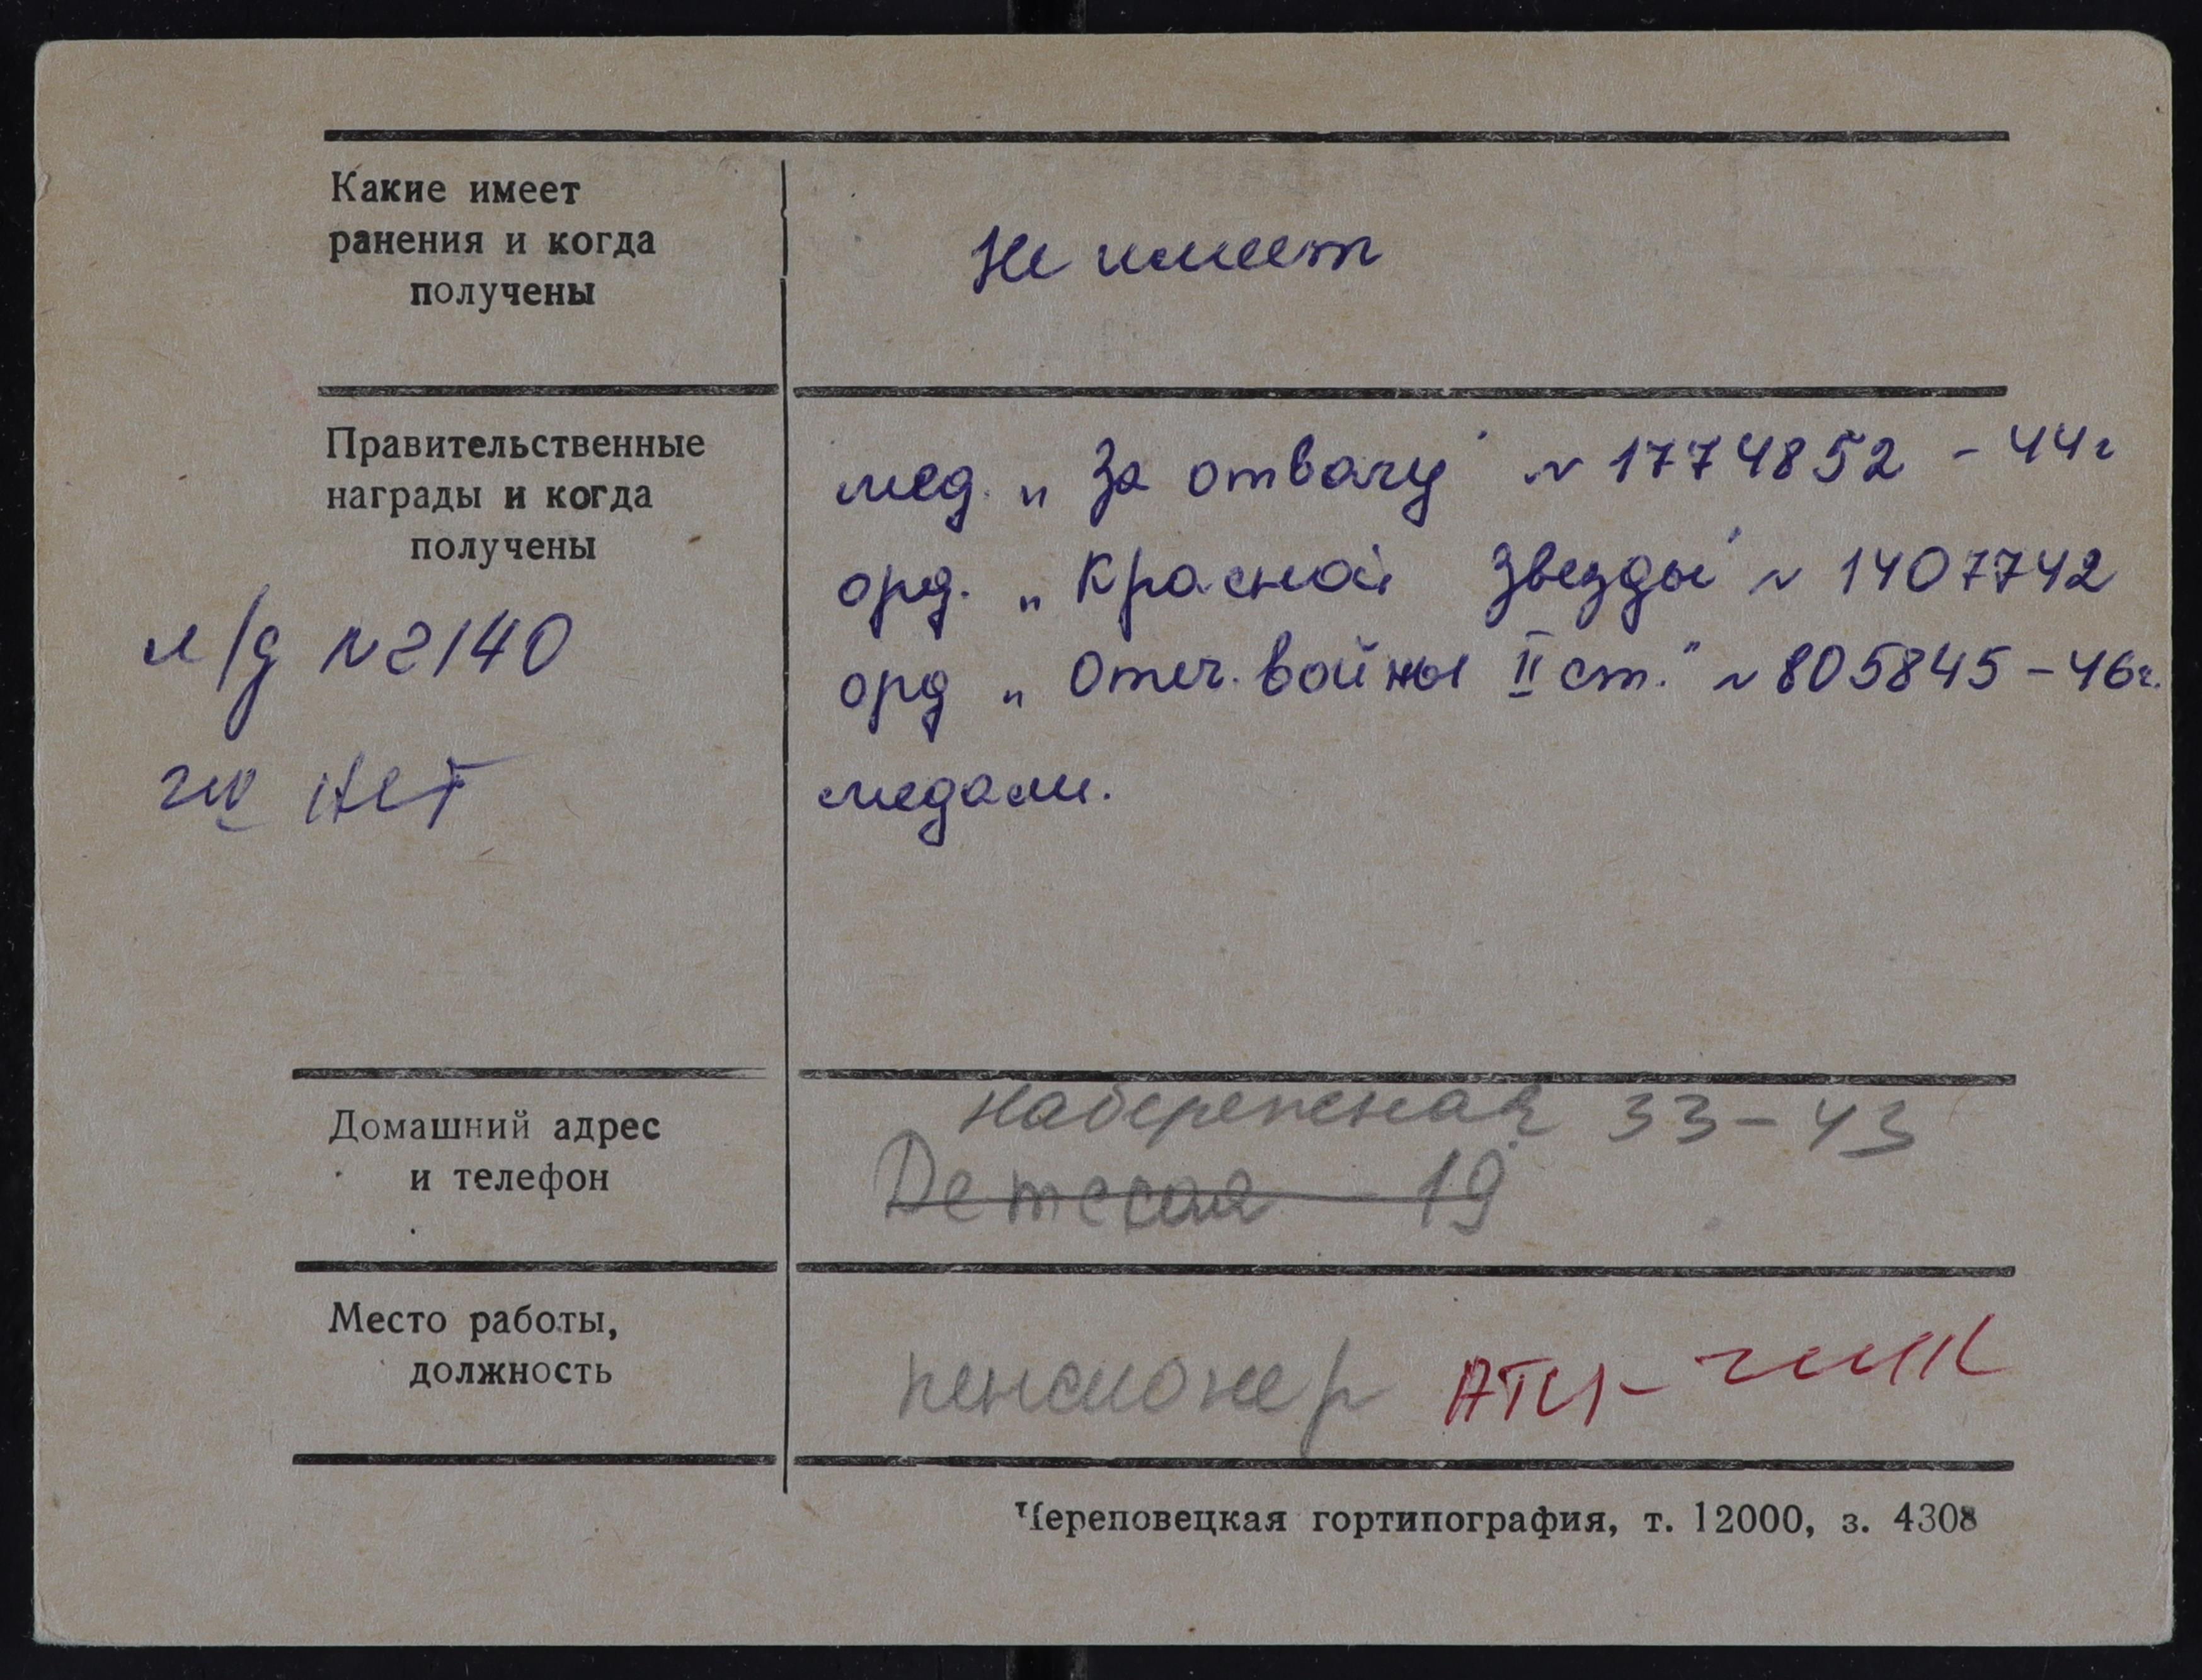 Какие имеет
ранения и когда
получены
Не имеет
Правительственные
награды и когда
получены
мед. „За отвагу" № 1774852 - 44г
орд. „Красной Звезды" № 1407742
орд „Отеч. войны II ст." № 805845 - 46г.
медали.
л/д №2140
нет
Домашний адрес
и телефон
Набережная 33-43
Детская - 19
Место работы,
должность
пенсионер
Череповецкая гортипография, т. 12000, з. 4308